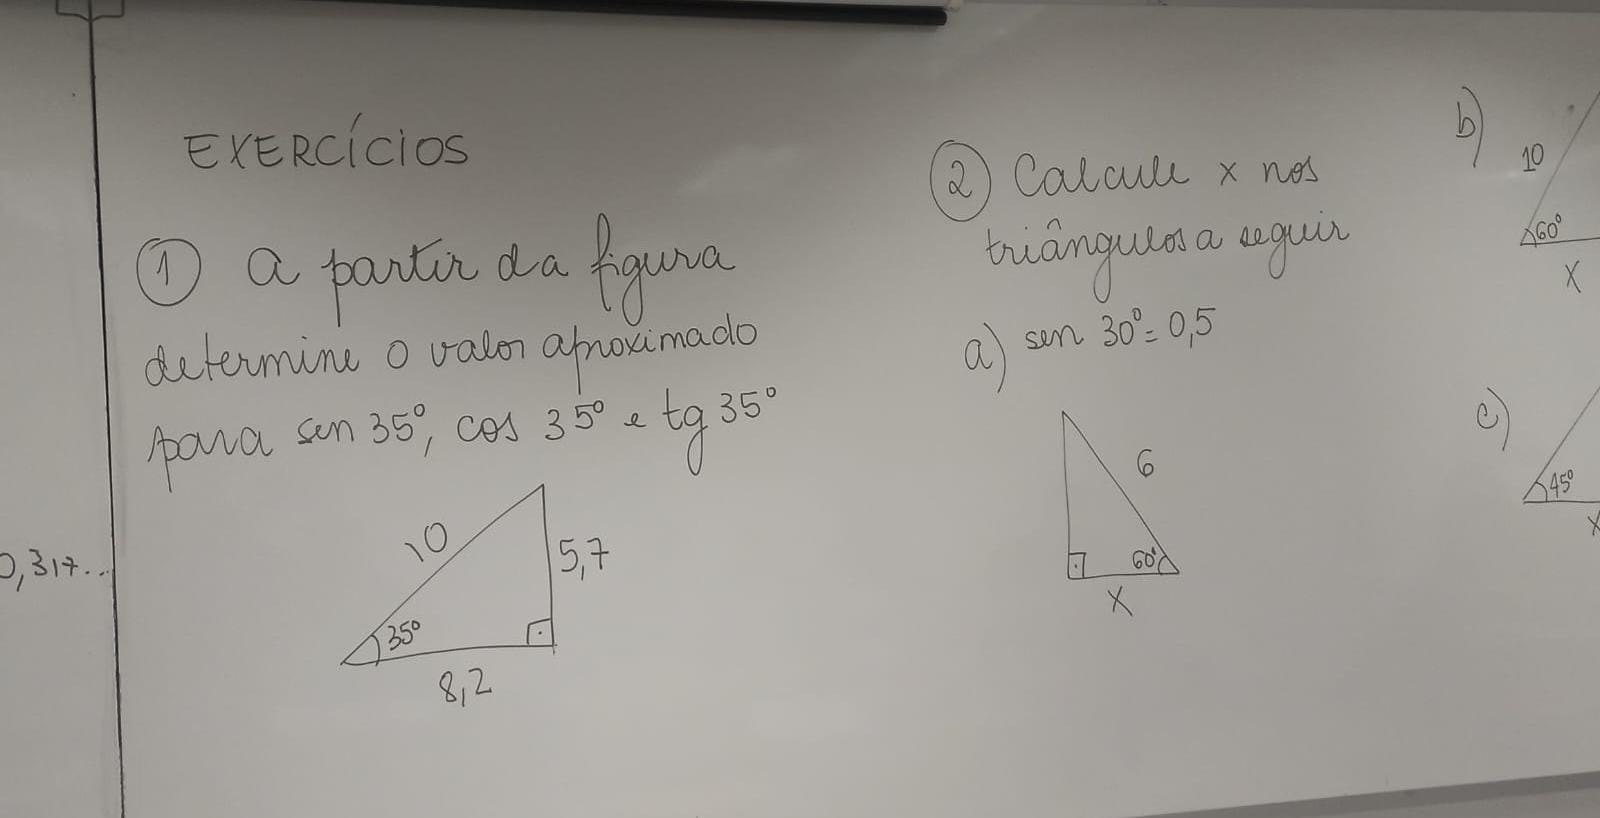 EXERCÍCIOS
① A partir da figura
determine o valor aproximado
para sen 35°, cos 35° e tg 35°
10
5,7
35°
8,2
0,317...
② Calcule x nos
triângulos a seguir
a) sen 30° = 0,5
6
60°
x
b)
10
60°
x
c)
45°
x